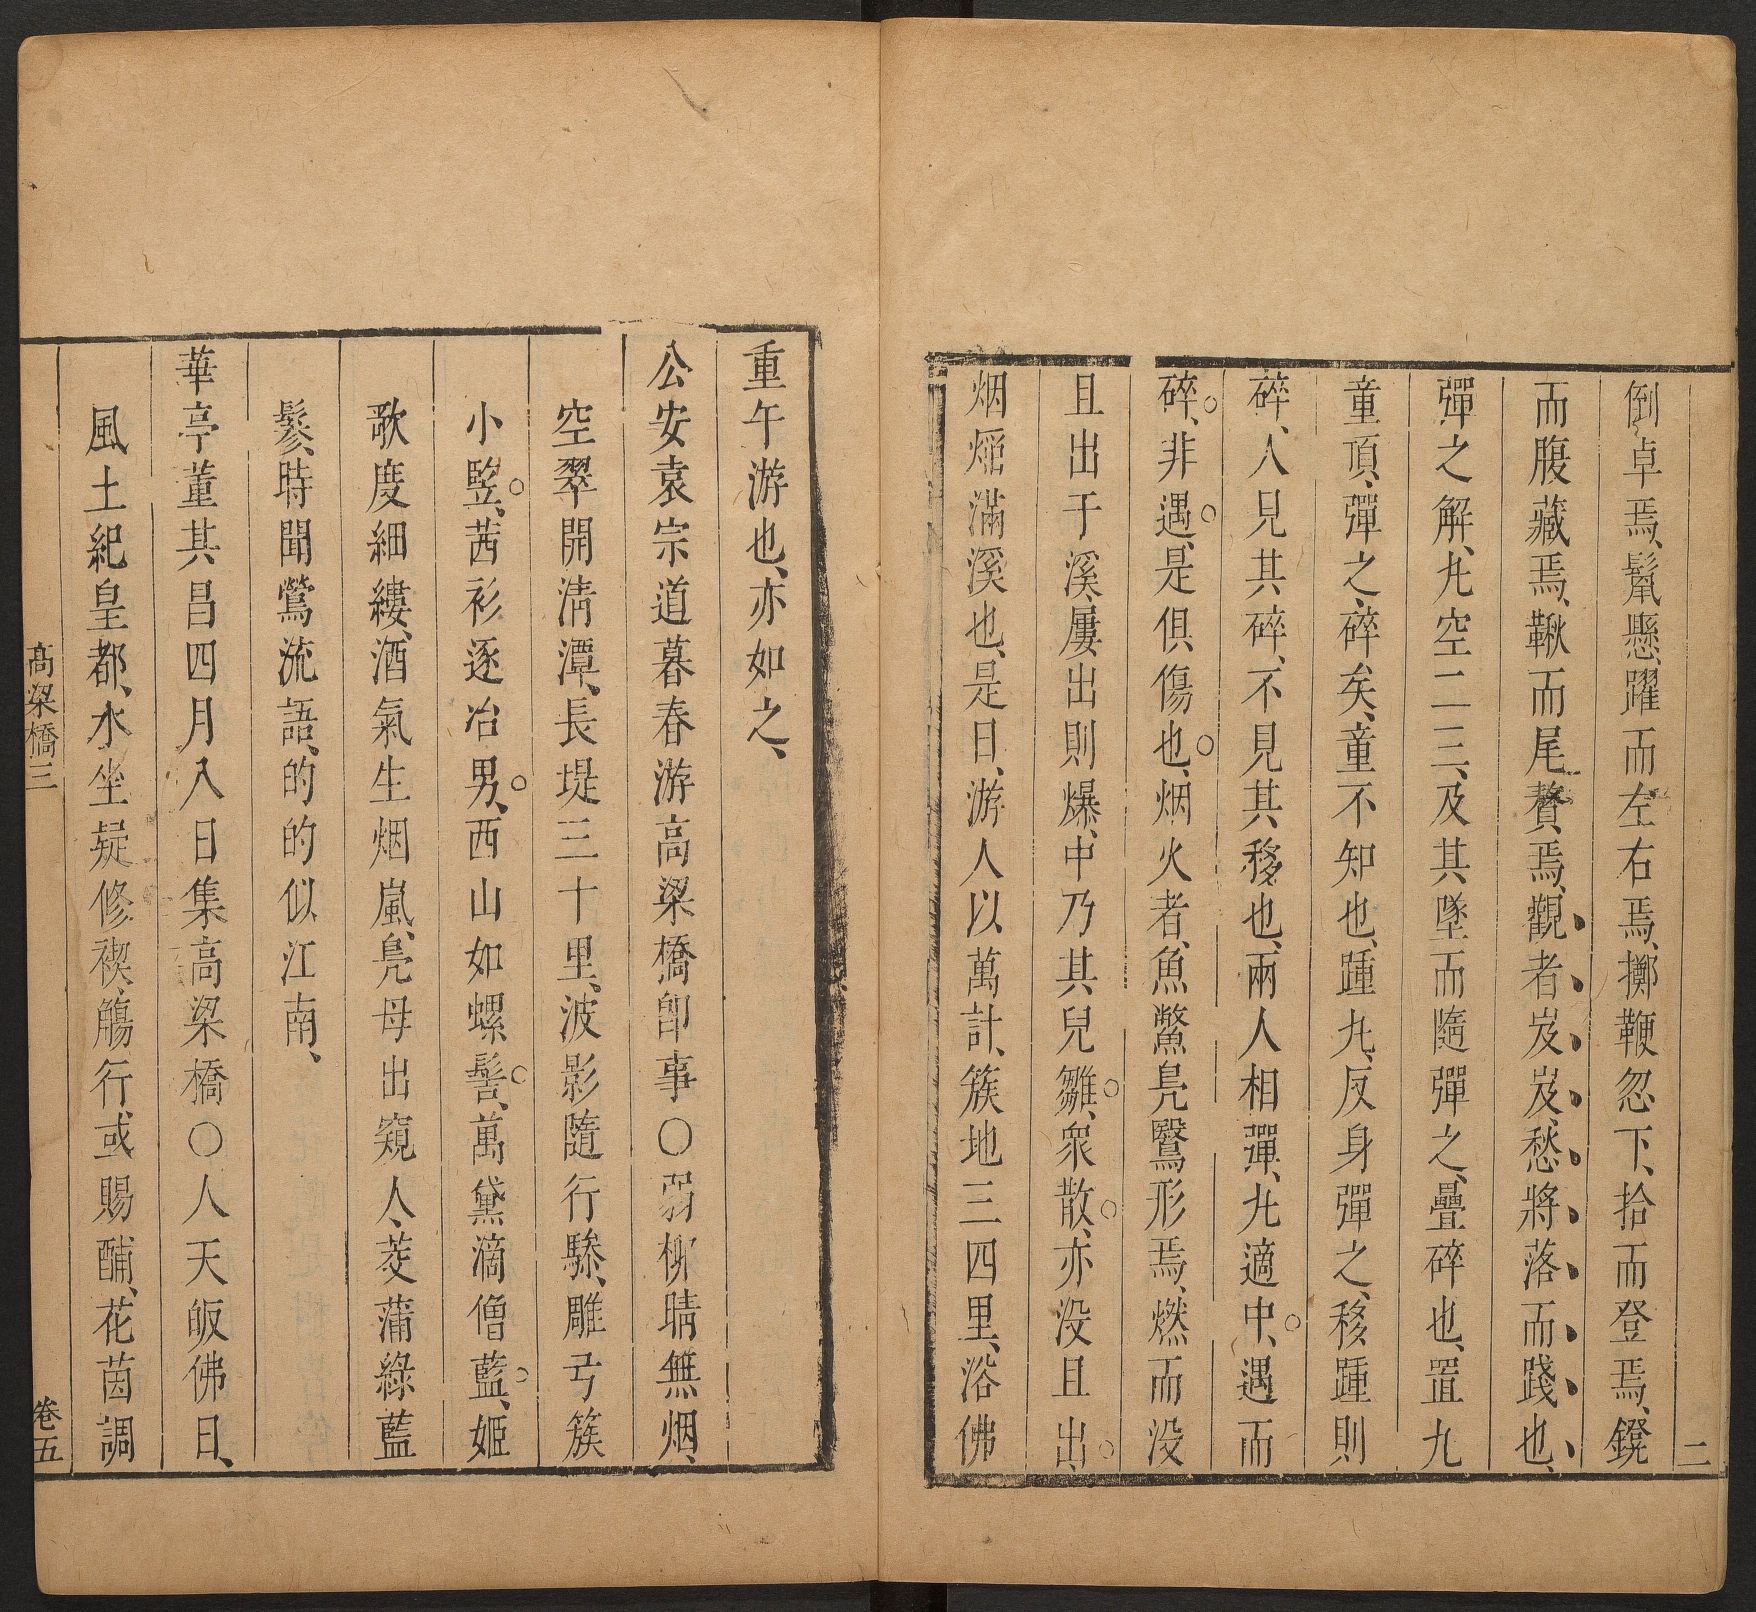 倒卓焉、鬣懸、躍而左右焉、擲鞭忽下、拾而登焉、鐙
而腹藏焉、鞦而尾贅焉、觀者岌岌、愁將落而踐也、
彈之解、丸空二三、及其墜而隨彈之、疊碎也、置丸
童頂、彈之碎矣、童不知也、踵丸、反身彈之、移踵則
碎、人見其碎、不見其移也、兩人相彈、丸適中、遇而
碎、非遇、是俱傷也、烟火者、魚鱉鳧鷖形焉、燃而没
且出于溪、屢出則爆、中乃其兒雛、衆散、亦没且出、
烟㷔滿溪也、是日、游人以萬計、簇地三四里、浴佛
二
重午游也、亦如之、
公安袁宗道暮春游高梁橋即事〇弱柳晴無烟、
空翠開清潭、長堤三十里、波影隨行驂、雕弓簇
小竪、茜衫逐冶男、西山如螺髻、萬黛滴僧藍、姬
歌度細縷、酒氣生烟嵐、鳧母出窺人、菱蒲綠藍
鬖、時聞鶯流語、的的似江南、
華亭董其昌四月八日集高梁橋〇人天皈佛日、
風土紀皇都、水坐疑修禊、觴行或賜酺、花茵調
高梁橋三
卷五